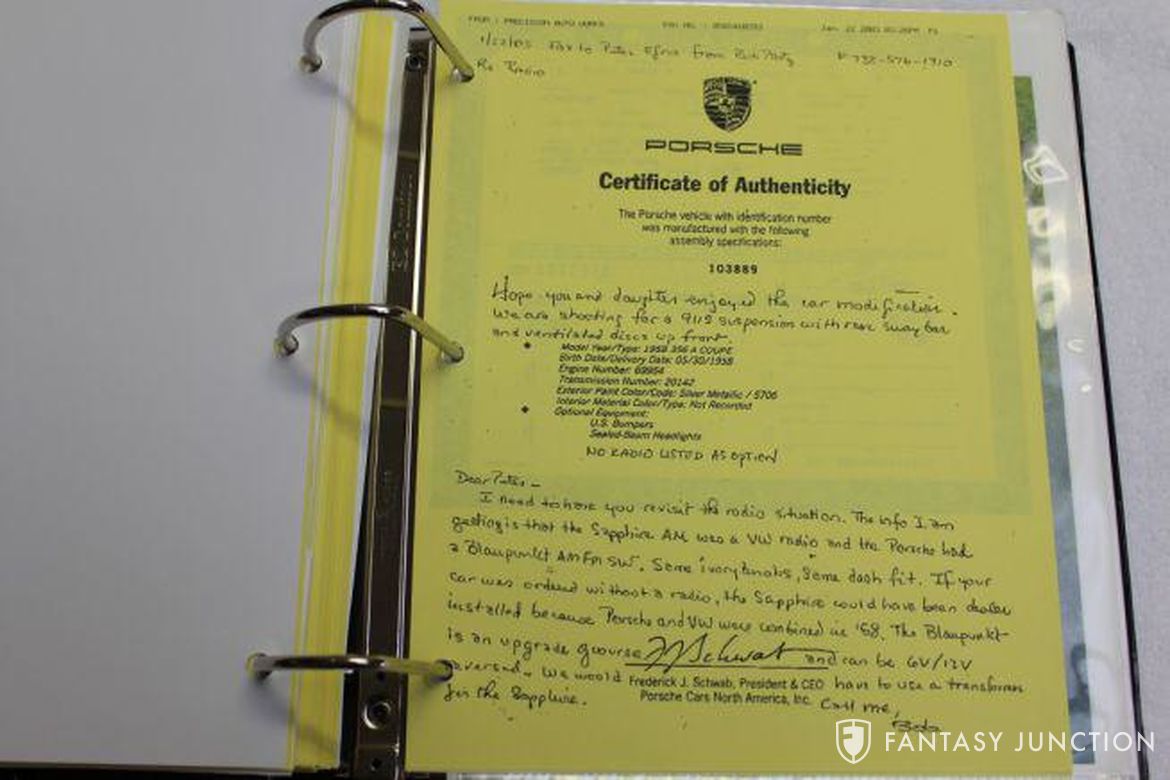 FROM : PRECISION AUTO WORKS FAX NO. : Jan. 22 2003 P1
1/22/03 Fax to Peter from F 732-576-1910
Re Radio
PORSCHE
PORSCHE
Certificate of Authenticity
The Porsche vehicle with identification number
was manufactured with the following
assembly specifications:
103889
Hope you and daughter enjoyed the car modification.
We are shooting for a 911S suspension with rear sway bar
and ventilated discs up front.
Model Year/Type: 1958 356 A COUPE
Birth Date/Delivery Date: 05/30/1958
Engine Number:
Transmission Number: 20142
Exterior Paint Color/Code: Silver Metallic / 5706
Interior Material Color/Type: Not Recorded
Optional Equipment:
U.S. Bumpers
Sealed-Beam Headlights
NO RADIO LISTED AS OPTION
Dear Peter –
I need to have you revisit the radio situation. The info I am
getting is that the Sapphire AM was a VW radio and the Porsche had
a Blaupunkt AM FM SW. Same ivory knobs, same dash fit. If your
car was ordered without a radio, the Sapphire could have been dealer
installed because Porsche and VW were combined in '58. The Blaupunkt
is an upgrade of course and can be 6V/12V
reversed. We would have to use a transformer
for the Sapphire. Call me,
Bob
Frederick J. Schwab, President & CEO
Porsche Cars North America, Inc.
FANTASY JUNCTION